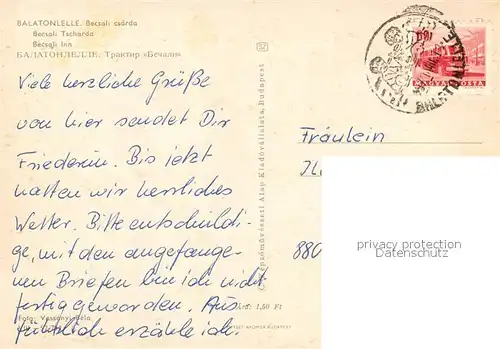 BALATONLELLE. Becsali csárda
Becsali Tscharda
Becsali Inn
БАЛАТОНЛЕЛЛЕ. Трактир «Бечали»
Viele herzliche Grüße
von hier sendet Dir
Friederun. Bis jetzt
hatten wir herrliches
Wetter. Bitte entschuldi-
ge, mit den angefange-
nen Briefen bin ich nicht
fertig geworden. Aus
führlich erzähle ich.
Foto: Vessányi Béla
1,50 Ft
Képzőművészeti Alap Kiadóvállalata, Budapest
MAGYAR POSTA
BALATONLELLE
Fräulein
880
privacy protection
Datenschutz